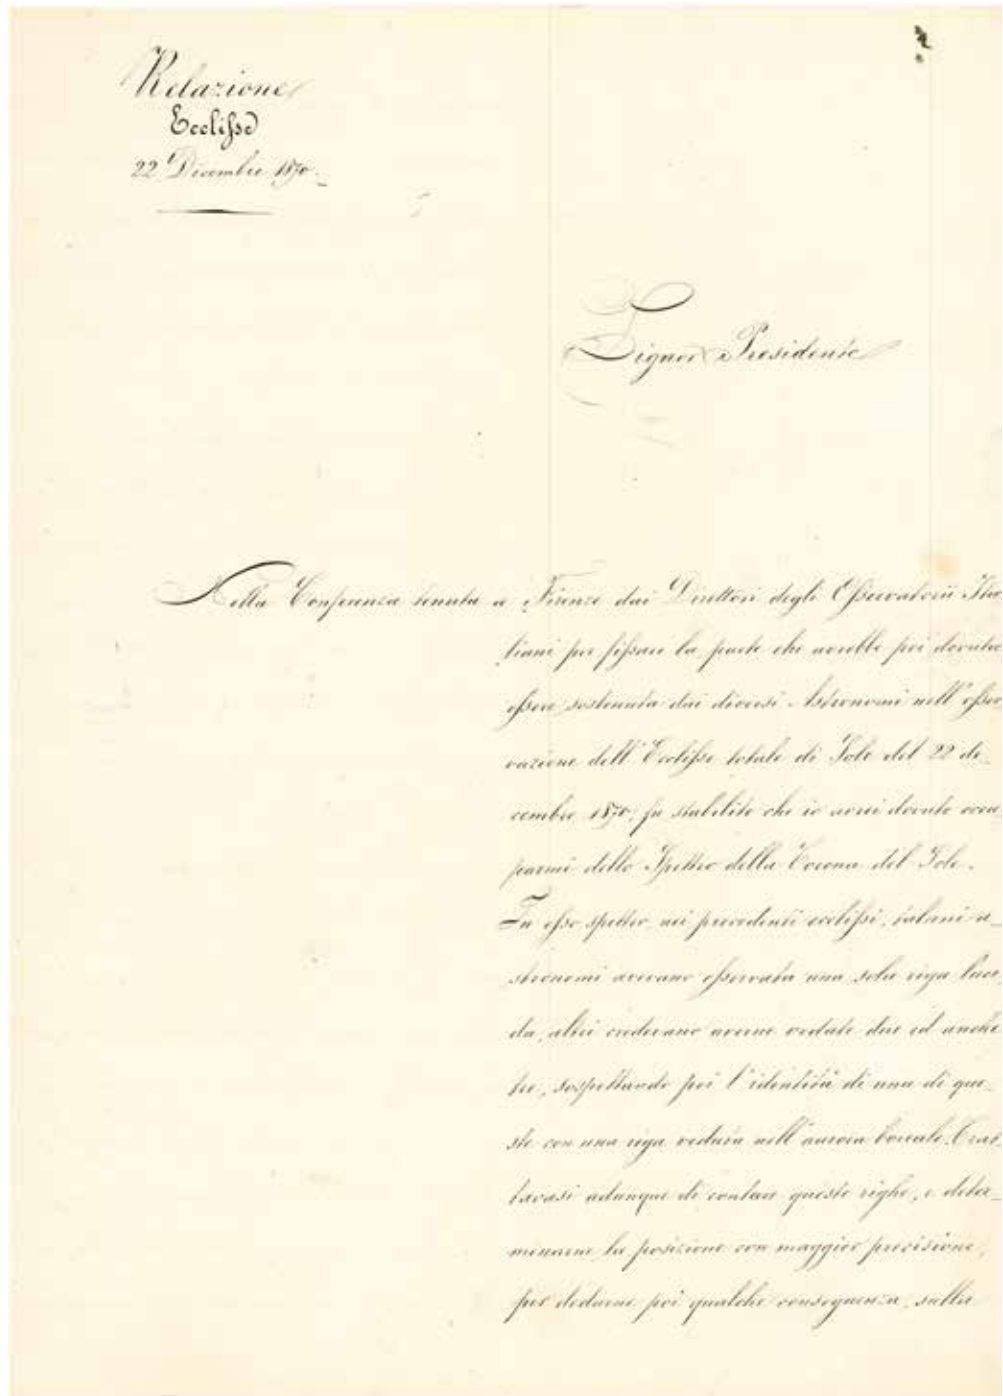 Relazione
Ecclisse
22 Dicembre 1870.
Signor Presidente
Nella Conferenza tenuta a Firenze dai Direttori degli Osservatorii Ita
liani per fissare la parte che avrebbe poi dovuta
essere sostenuta dai diversi Astronomi nell'osser
vazione dell'Ecclisse totale di Sole del 22 di_
cembre 1870, fu stabilito che io avrei dovuto occu
parmi dello Spettro della Corona del Sole.
In esso spettro, nei precedenti ecclissi, taluni a_
stronomi avevano osservata una sola riga luci
da, altri credevano averne vedute due ed anche
tre, sospettando poi l'identità di una di que_
ste con una riga veduta nell'aurora boreale. Trat_
tavasi adunque di contare queste righe, e deter_
minarne la posizione con maggior precisione,
per dedurne poi qualche conseguenza sulla